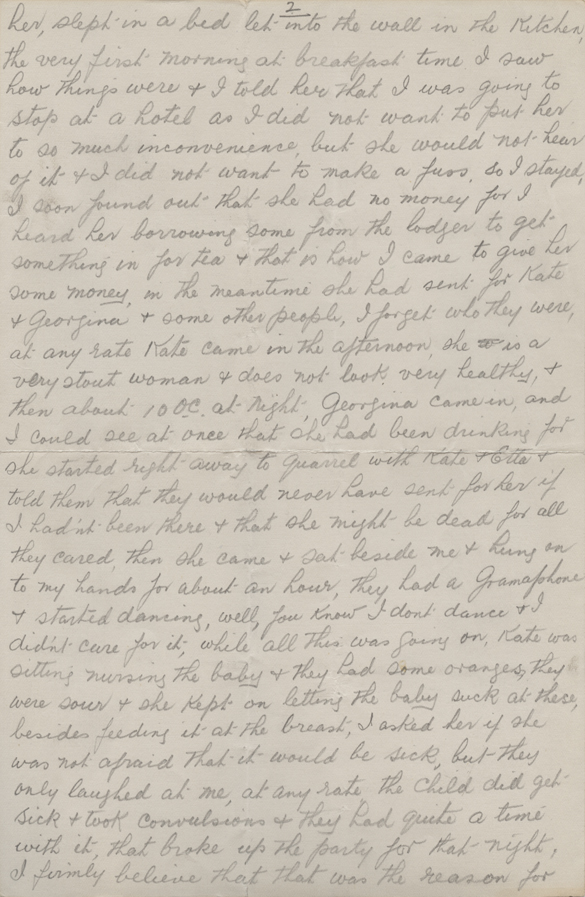 2
her, slept in a bed let into the wall in the Kitchen,
the very first morning at breakfast time I saw
how things were & I told her that I was going to
stop at a hotel as I did not want to put her
to so much inconvenience, but she would not hear
of it & I did not want to make a fuss, so I stayed,
I soon found out that she had no money for I
heard her borrowing some from the lodger to get
something in for tea & that is how I came to give her
some money, in the meantime she had sent for Kate
& Georgina & some other people, I forget who they were,
at any rate Kate came in the afternoon, she is a
very stout woman & does not look very healthy, &
then about 10 OC. at Night, Georgina came in, and
I could see at once that she had been drinking for
she started right away to quarrel with Kate & Etta &
told them that they would never have sent for her if
I had'nt been there & that she might be dead for all
they cared, then she came & sat beside me & hung on
to my hands for about an hour, they had a Gramaphone
& started dancing, well, you Know I dont dance & I
did'nt care for it, while all this was going on, Kate was
sitting nursing the baby & they had some oranges, they
were sour & she Kept on letting the baby suck at these,
besides feeding it at the breast, I asked her if she
was not afraid that it would be sick, but they
only laughed at me, at any rate the child did get
sick & took convulsions & they had quite a time
with it, that broke up the party for that night,
I firmly believe that that was the reason for